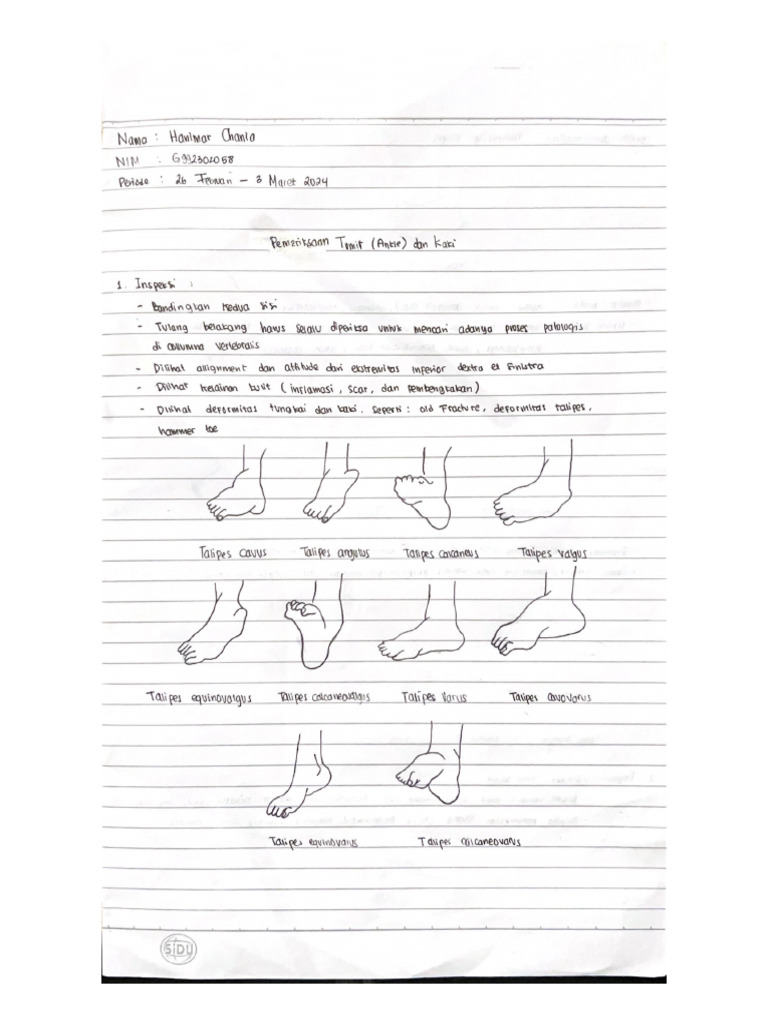 Nama : Hanimar Chania
NIM : G992302058
Periode : 26 Februari - 3 Maret 2024
Pemeriksaan Tumit (Ankle) dan Kaki
1. Inspeksi :
- Bandingkan kedua sisi
- Tulang belakang harus selalu diperiksa untuk mencari adanya proses patologis
di columna vertebralis
- Dilihat alignment dan attitude dari ekstremitas inferior dextra et sinistra
- Dilihat kelainan kulit (inflamasi, scar, dan pembengkakan)
- Dilihat deformitas tungkai dan kaki, seperti : old fracture, deformitas talipes,
hammer toe
Talipes cavus Talipes angulus Talipes calcaneus Talipes valgus
Talipes equinovalgus Talipes calcaneovalgus Talipes Varus Talipes cavovarus
Talipes equinovarus Talipes calcaneovarus
SIDU